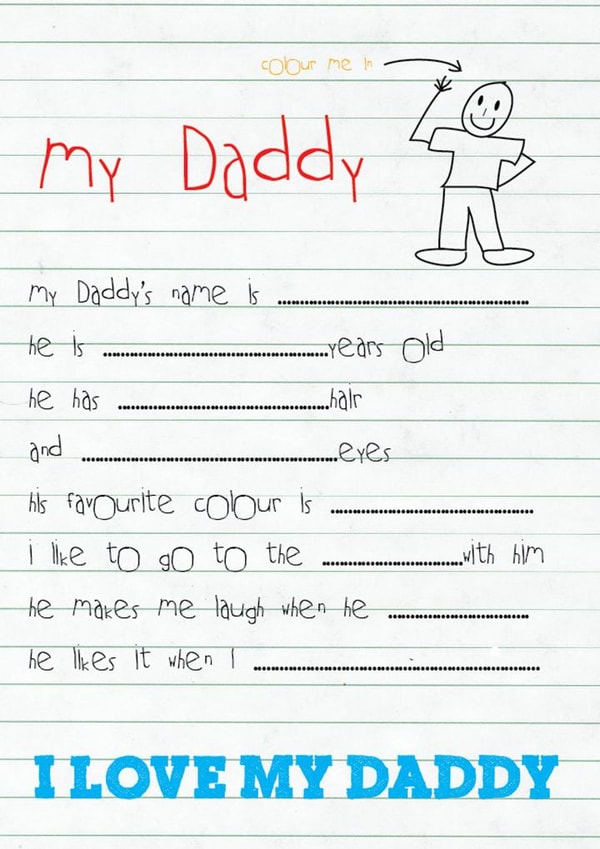 colour me in
my Daddy
my Daddy's name is ..............................
he is ..............................years old
he has ..............................hair
and ..............................eyes
his favourite colour is ..............................
i like to go to the ....................with him
he makes me laugh when he ....................
he likes it when I ..............................
I LOVE MY DADDY